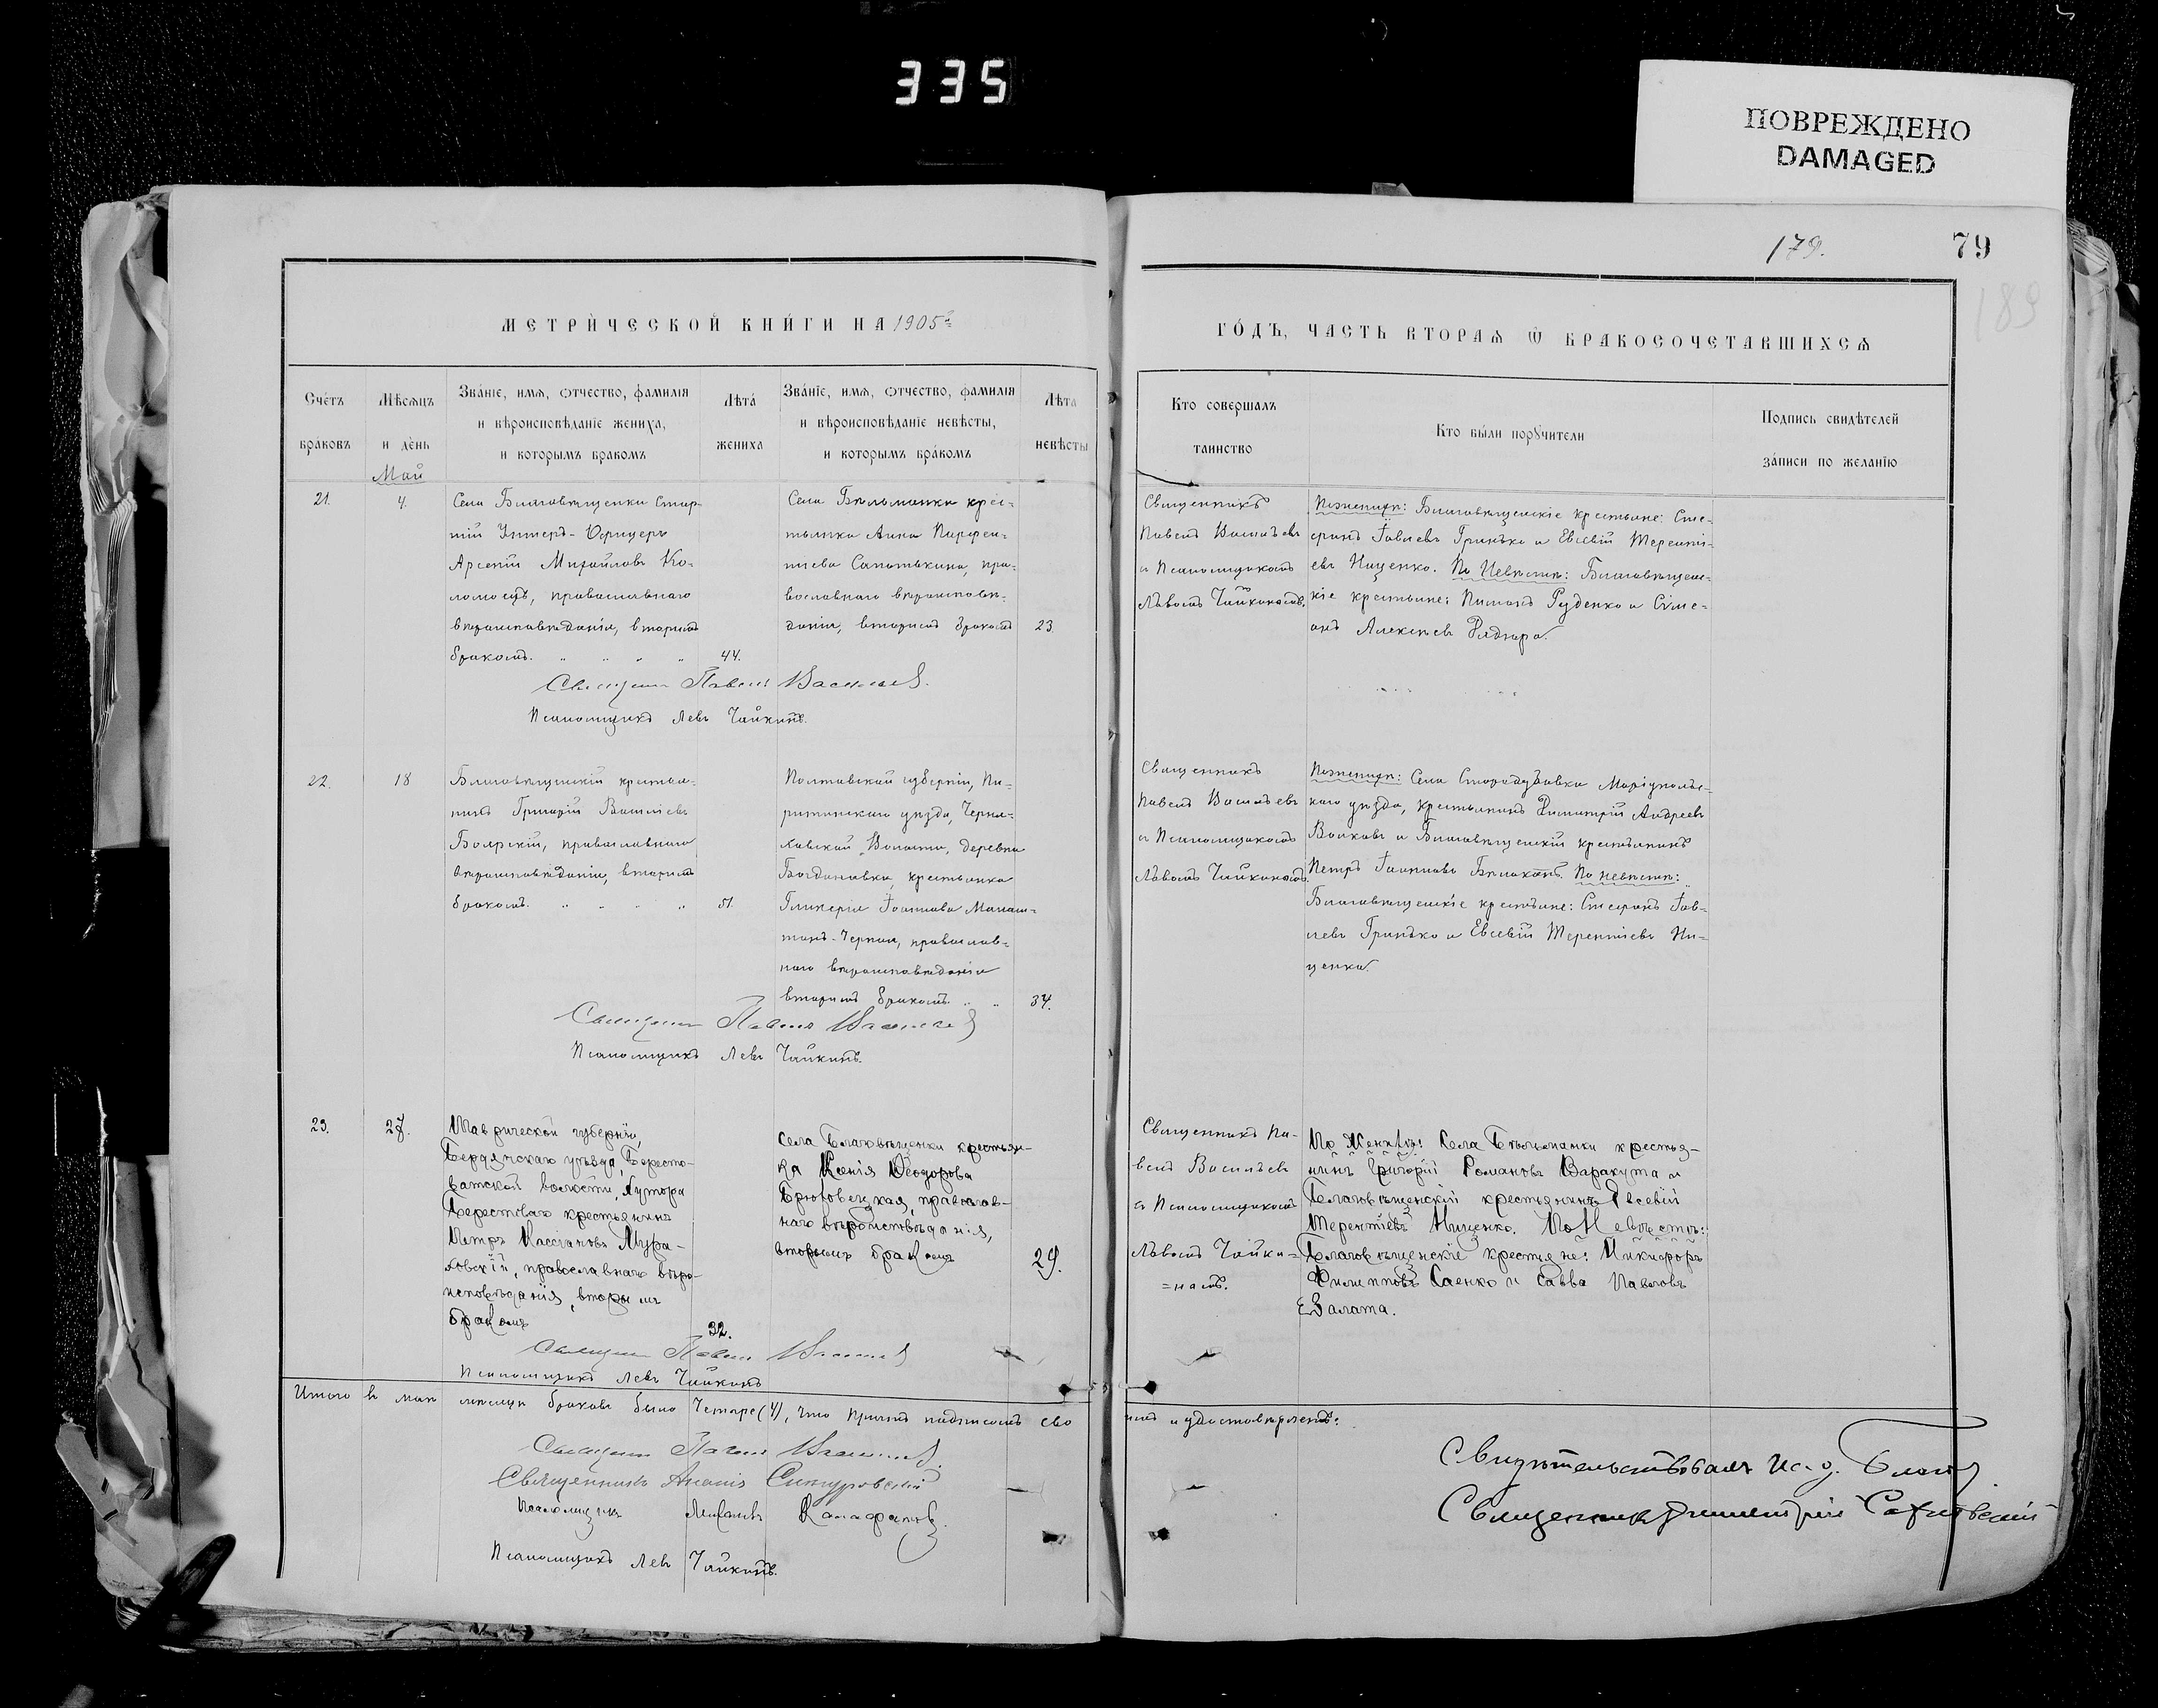 335
ПОВРЕЖДЕНО
DAMAGED
179.
79
189
МЕТРИ́ЧЕСКОЙ КНИ́ГИ НА 1905 г.
ГО́ДЪ, ЧАСТЬ ВТОРАѦ Ѡ БРАКОСОЧЕТАВШИХСѦ
Сче́тъ
бра́ковъ
Мѣ́сѧцъ
и де́нь
Зва́нїе, имѧ, ѻтчество, фамилїѧ
и вѣроисповѣданїе жениха,
и которымъ бракомъ
Лѣта́
жениха
Зва́нїе, имѧ, ѻтчество, фамилїѧ
и вѣроисповѣданїе невѣсты,
и которымъ бра́комъ
Лѣта
невѣсты
Кто совершалъ
таинство
Кто бы́ли порꙋчители
Подпись свидѣтелей
за́писи по жела́нїю
Май
21.
4.
Села Благовѣщенки Стар-
шій Унтеръ-Офицеръ
Арсеній Михайловъ Ко-
ломоецъ, православнаго
вѣроисповѣданія, вторымъ
бракомъ.
44.
Села Бѣльманки крес-
тьянка Анна Парфен-
тіева Сапотькина, пра-
вославнаго вѣроисповѣ-
данія, вторымъ бракомъ
23.
Священникъ
Павелъ Васильевъ
и Псаломщикомъ
Львомъ Чайкинымъ.
По женихѣ: Благовѣщенскіе крестьяне: Сте-
фанъ Іовлевъ Гринько и Евсевій Теренті-
евъ Ниценко. По Невѣстѣ: Благовѣщенс-
кіе крестьяне: Руденко и Симе-
онъ Алексѣевъ
Священникъ Павелъ Васильевъ.
Псаломщикъ Левъ Чайкинъ.
22.
18
Благовѣщенскій крестья-
нинъ Григорій Василіевъ
Боярскій, православнаго
вѣроисповѣданія, вторымъ
бракомъ.
51.
Полтавской губерніи, Пи-
рятинскаго уѣзда, Черня-
ховской Волости, деревни
Богдановки, крестьянка
Гликерія Іоаннова
Черная, православ-
наго вѣроисповѣданія
вторымъ бракомъ.
34.
Священникъ
Павелъ Васильевъ
и Псаломщикомъ
Львомъ Чайкинымъ.
По женихѣ: Села Стародубовки Маріупольс-
каго уѣзда, крестьянинъ Димитрій Андреевъ
Волковъ и Благовѣщенскій крестьянинъ
Петръ Іоанновъ По невѣстѣ:
Благовѣщенскіе крестьяне: Стефанъ Іов-
левъ Гринько и Евсевій Терентіевъ Ни-
ценко.
Священникъ Павелъ Васильевъ
Псаломщикъ Левъ Чайкинъ.
23.
27.
Таврической губерніи,
Бердянскаго уѣзда, Бересто-
ватской волости, хутора
Берестоваго крестьянинъ
Петръ Кассіановъ Мура-
ховскій, православнаго вѣро-
исповѣданія, вторымъ
бракомъ
32.
Села Благовѣщенки крестьян-
ка Ксенія Ѳеодорова
Брюховецкая, православ-
наго вѣроисповѣданія,
вторымъ бракомъ
29.
Священникъ Па-
велъ Васильевъ
и Псаломщикомъ
Львомъ Чайки-
=нымъ.
По Женихѣ: Села Бѣльманки крестья-
нинъ Григорій Романовъ Варакута и
Благовѣщенскій крестьянинъ Евсевій
Терентіевъ Ниценко. По Невѣстѣ:
Благовѣщенскіе крестьяне: Никифоръ
Филипповъ Саенко и Савва Павловъ
Залата.
Священникъ Павелъ Васильевъ
Псаломщикъ Левъ Чайкинъ
Итого въ маѣ мѣсяцѣ браковъ было четыре (4), что причтъ подписомъ сво имъ и удостовѣряетъ:
Священникъ Павелъ Васильевъ.
Священникъ
Псаломщикъ
Псаломщикъ Левъ Чайкинъ.
Свидѣтельствовалъ и. д.
Священникъ Димитрій